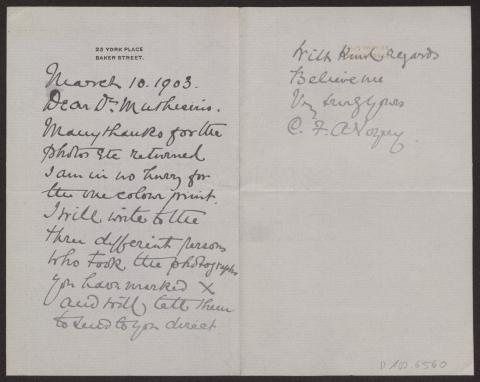 23 YORK PLACE
BAKER STREET.
March 10. 1903.
Dear Dr. Muthesius.
Many thanks for the
photos &te returned
I am in no hurry for
the one colour print.
I will write to the
three different persons
who took the photographs
you have marked X
and will tell them
to send to you direct
With Kind regards
Believe me
Vy trulyyours
C. F. A Voysey